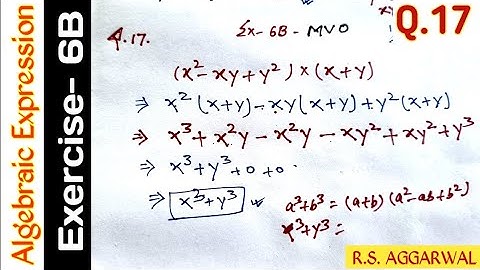 Algebraic Expression
Exercise- 6B
Q.17
Q.17. Ex- 6B - MVO
(x²- xy + y²) × (x+y)
⇒ x²(x+y) - xy(x+y) + y²(x+y)
⇒ x³ + x²y - x²y - xy² + xy² + y³
⇒ x³ + y³ + 0 + 0 .
⇒ x³ + y³
a³+b³ = (a+b) (a²-ab+b²)
x³+y³ =
R.S. AGGARWAL